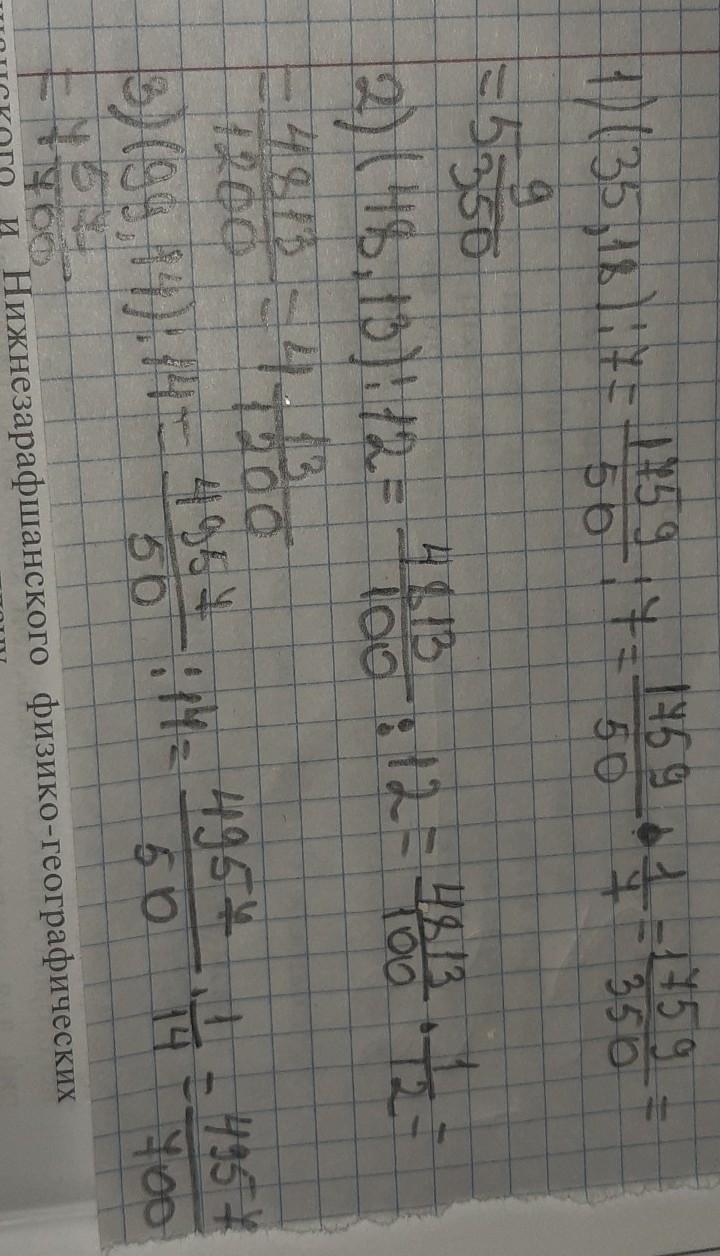 1) (35,18) : 7 = 1759/50 : 7 = 1759/50 · 1/7 = 1759/350 =
= 5 9/350
2) (48,13) : 12 = 4813/100 : 12 = 4813/100 · 1/12 =
= 4813/1200 = 4 13/1200
3) (99,14) : 14 = 4957/50 : 14 = 4957/50 · 1/14 = 4957/700
= 7 57/700
и Нижнезарафшанского физико-географических